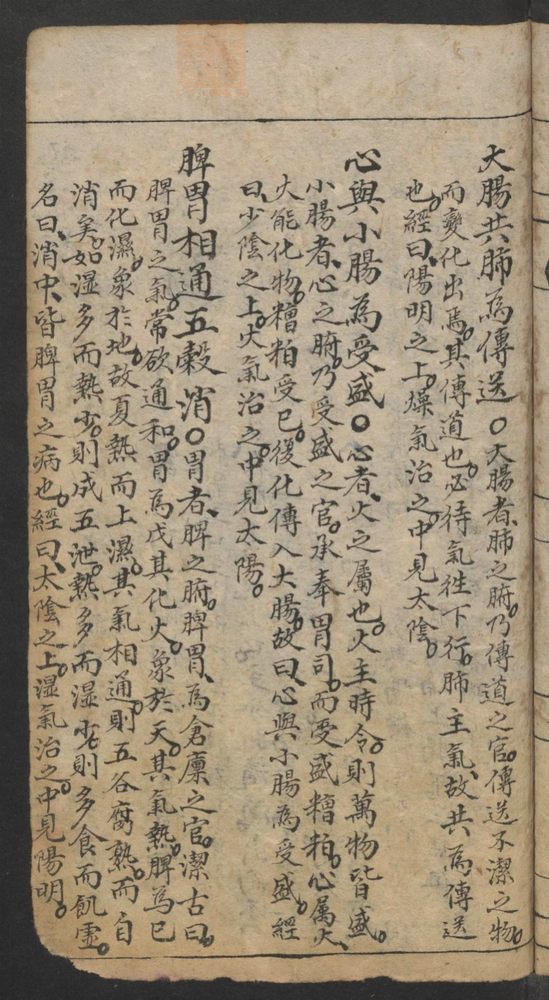 大腸共肺為傳送〇大腸者、肺之腑。乃傳道之官。傳送不潔之物。
而變化出焉。其傳道也。必待氣往下行。肺主氣、故共為傳送
也。經曰、陽明之上。燥氣治之。中見太陰。
心與小腸為受盛〇心者、火之屬也。火主時令。則萬物皆盛。
小腸者、心之腑。乃受盛之官。承奉胃司。而受盛糟粕。心屬火、
火能化物。糟粕受已。復化傳入大腸。故曰、心與小腸為受盛。經
曰、少陰之上。火氣治之。中見太陽。
脾胃相通五穀消〇胃者、脾之腑。脾胃、為倉廩之官。潔古曰。
脾胃之氣。常欲通和。胃為戊其化火。象於天。其氣熱。脾為己
而化濕。象於地。故夏熱而上濕。其氣相通。則五谷腐熟。而自
消矣。如湿多而熱少。則成五泄。熱多而湿少。則多食而飢虛。
名曰、消中、皆脾胃之病也。經曰、太陰之上。湿氣治之。中見陽明。